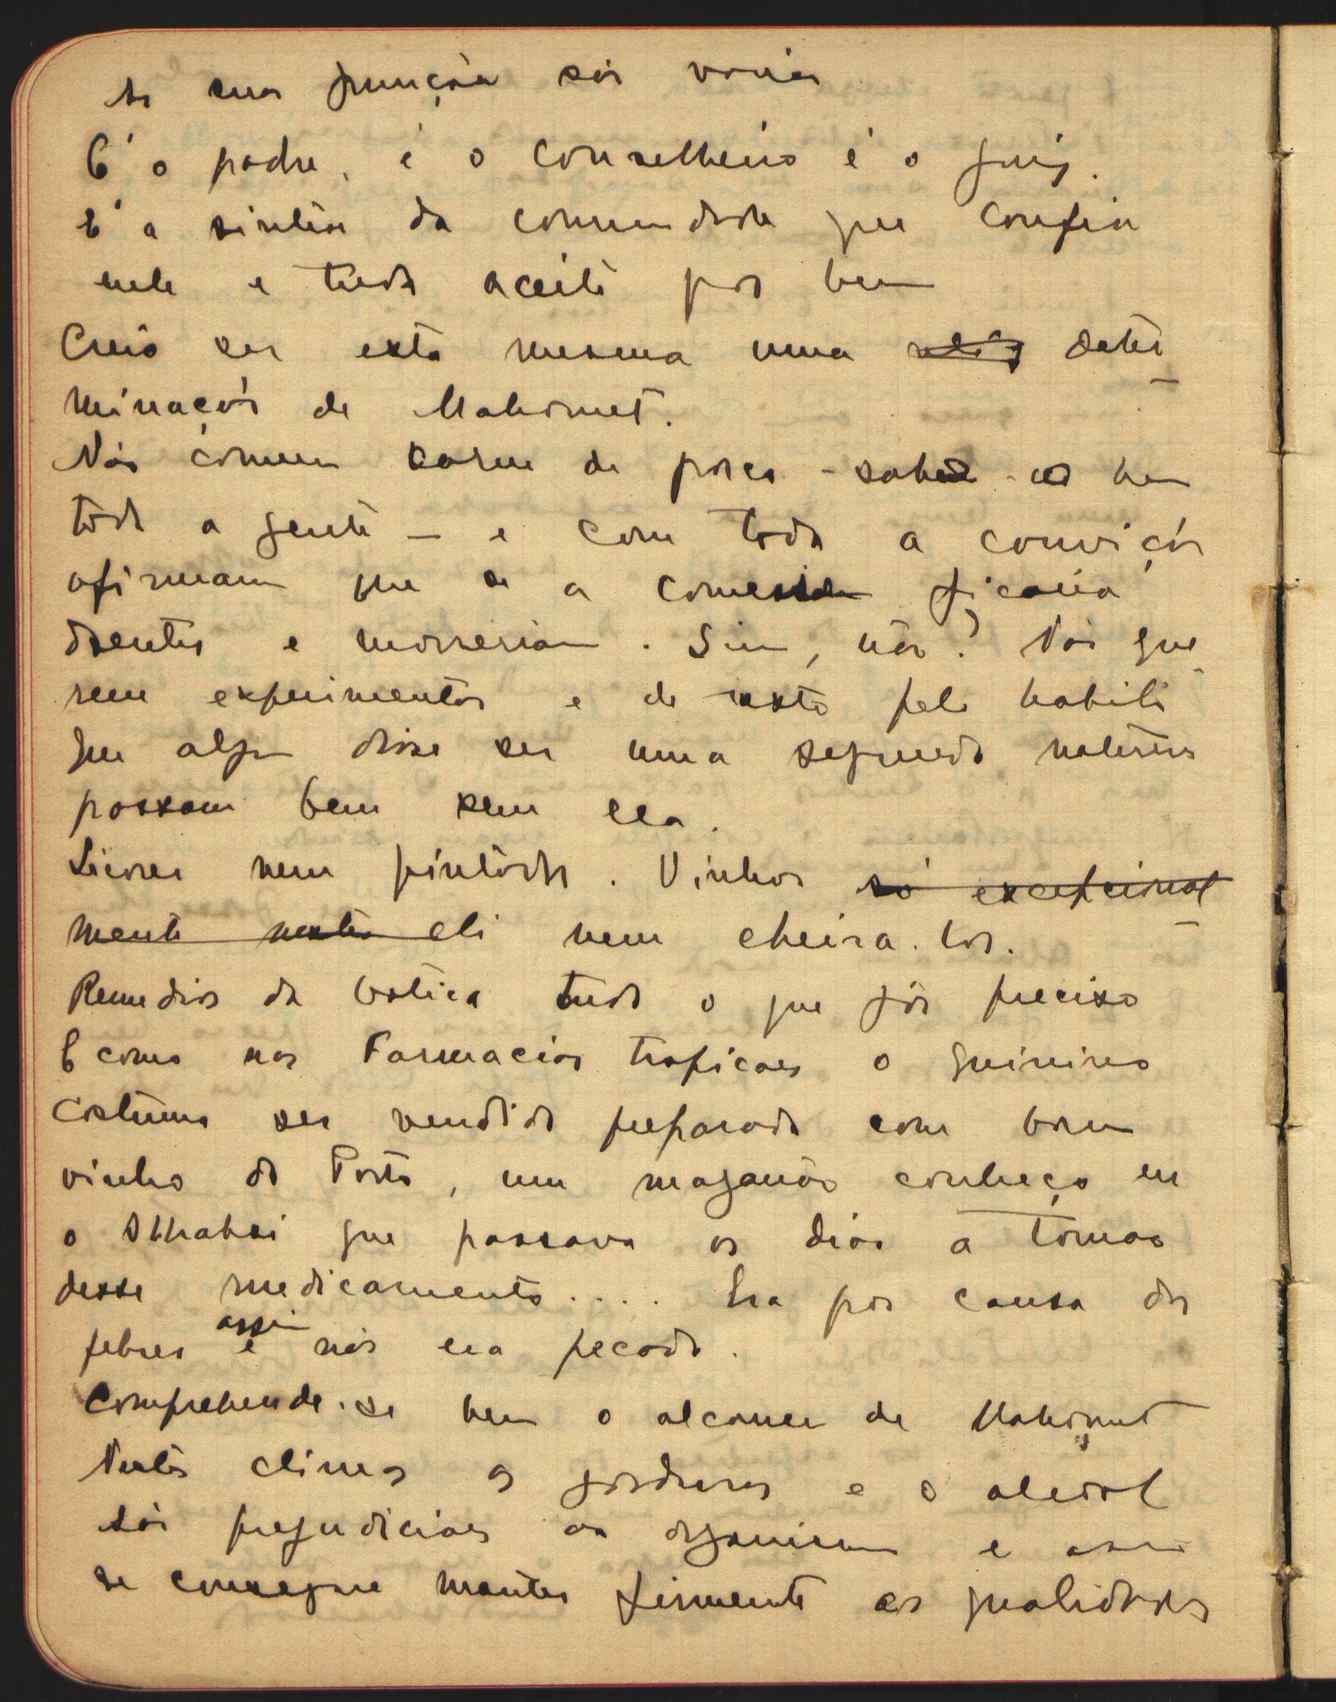 As suas funções são varias
É o padre, é o conselheiro é o juiz.
É a sintese da comunidade que confia
nele e tudo aceita por bem
Creio ser esta mesma uma deter
minação de Mahomet.
Não comem carne de porco - sabe-o bem
toda a gente - e com toda a convicção
afirmam que se a comessem ficariam
doentes e morreriam. Sim, não? Nós que
sem experimentos e de resto pelo habito
que alguem disse ser uma segunda natureza
possam bem sem ela.
Licores nem pintados. Vinhos só excepcional
mente neste eli nem cheira-los.
Remedios da botica tudo o que fôr preciso
E como nas Farmacias traficaes o quinino
costuma ser vendido preparado com bom
vinho do Porto, um maganão conheço eu
o que passava os dias a tomar
desse medicamento.... Era por causa das
febres e assim não era pecado.
Comprehende-se bem o alcance de Mahomet
Nestes climas as gorduras e o alcool
são prejudiciaes ao organismo e assim
se consegue manter firmemente as qualidades